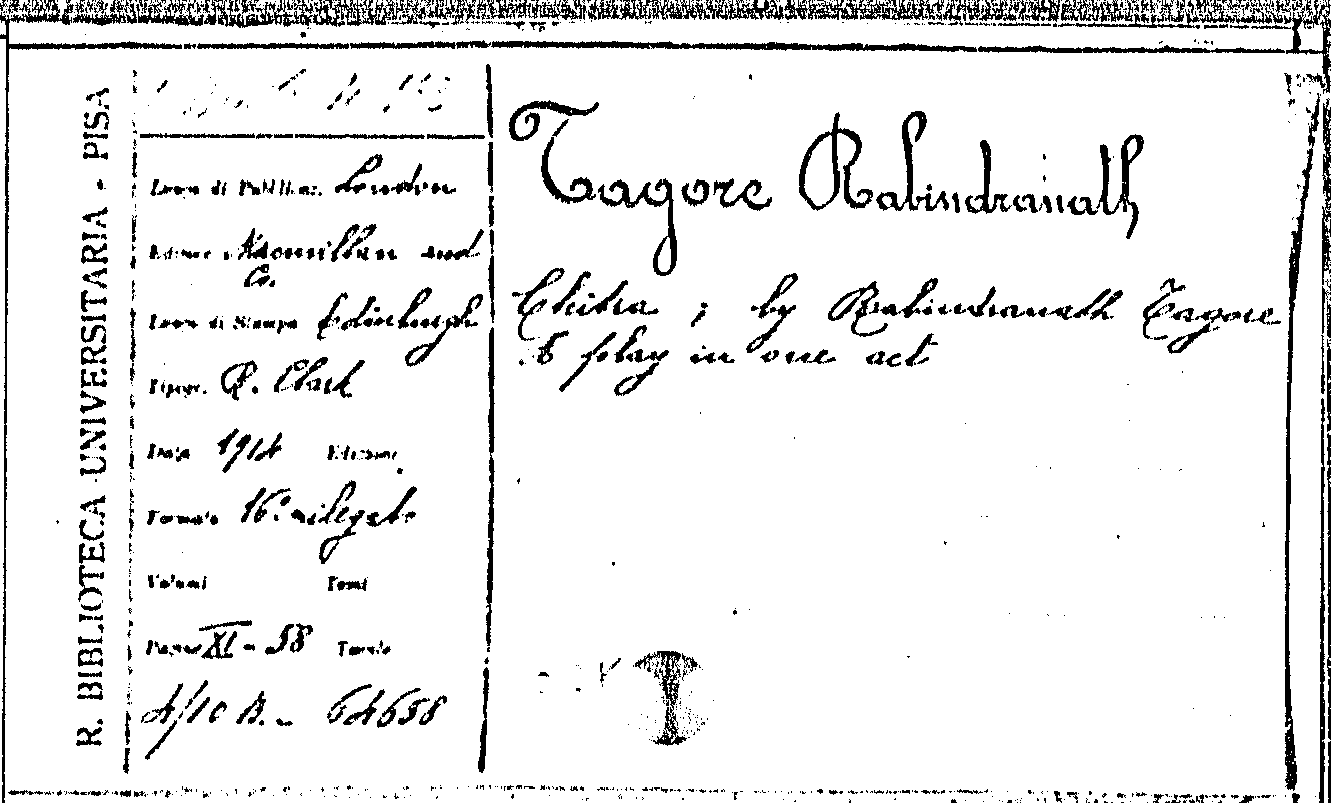 R. BIBLIOTECA UNIVERSITARIA - PISA
Luogo di Pubblicaz. London
Editore Macmillan and
Co.
Luogo di Stampa Edinburgh
Tipogr. R. Clark
Data 1914 Edizione
Formato 16° rilegato
Volumi Tomi
Pagine XI - 58 Tavole
4/10 B. - 64658
Tagore Rabindranath
Chitra ; by Rabindranath Tagore
A play in one act